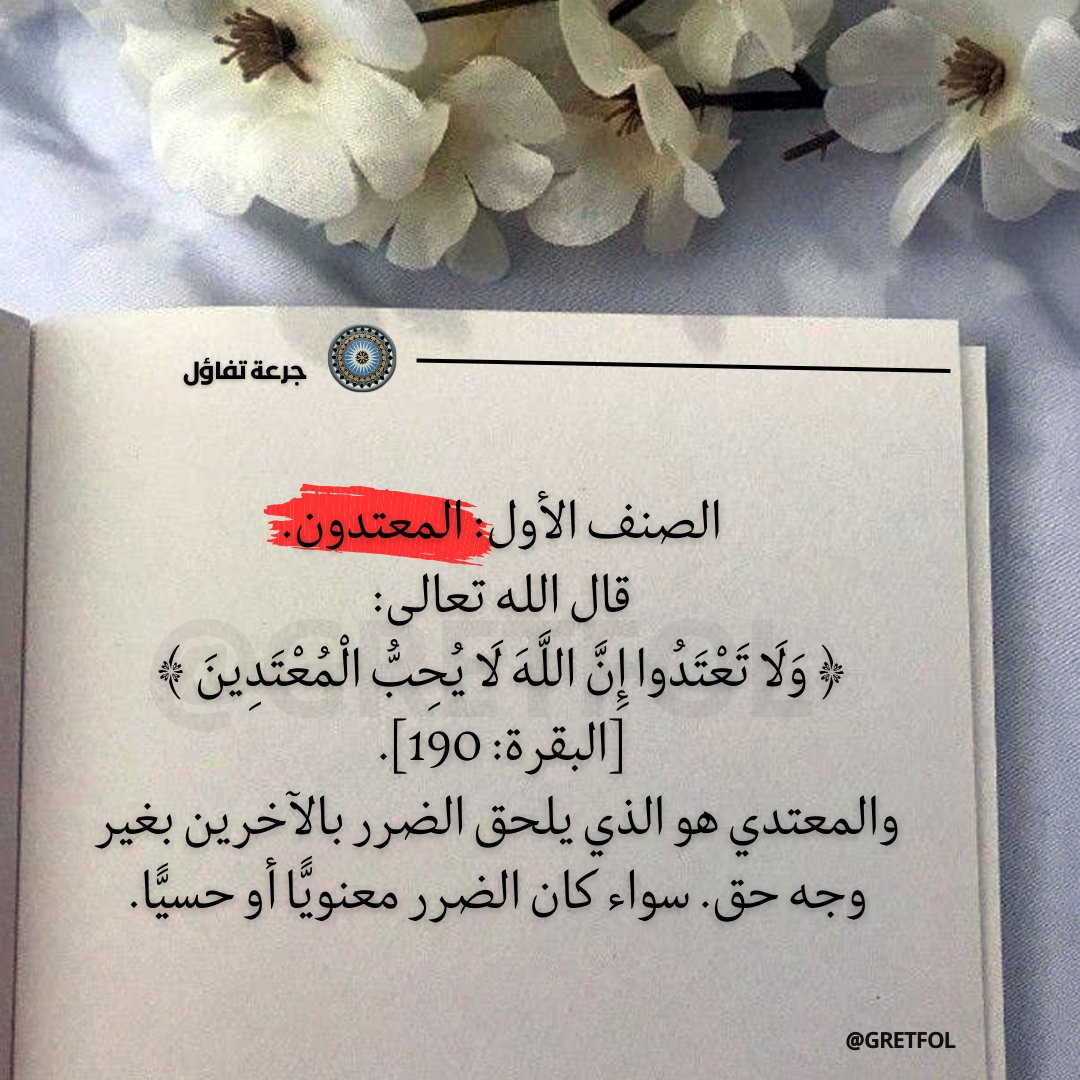 جرعة تفاؤل
الصنف الأول: المعتدون.
قال الله تعالى:
﴿ وَلَا تَعْتَدُوا إِنَّ اللَّهَ لَا يُحِبُّ الْمُعْتَدِينَ ﴾
[البقرة: 190].
والمعتدي هو الذي يلحق الضرر بالآخرين بغير
وجه حق. سواء كان الضرر معنويًّا أو حسيًّا.
@GRETFOL
@GRETFOL